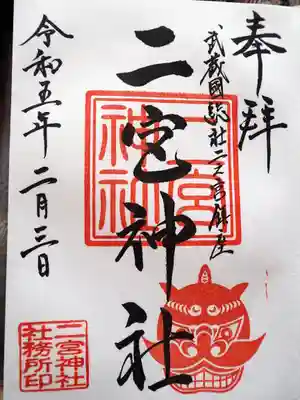 奉拝
武蔵國総社二之宮鎮座
二宮神社
令和五年二月三日
二宮
神社
二宮神社
社務所印